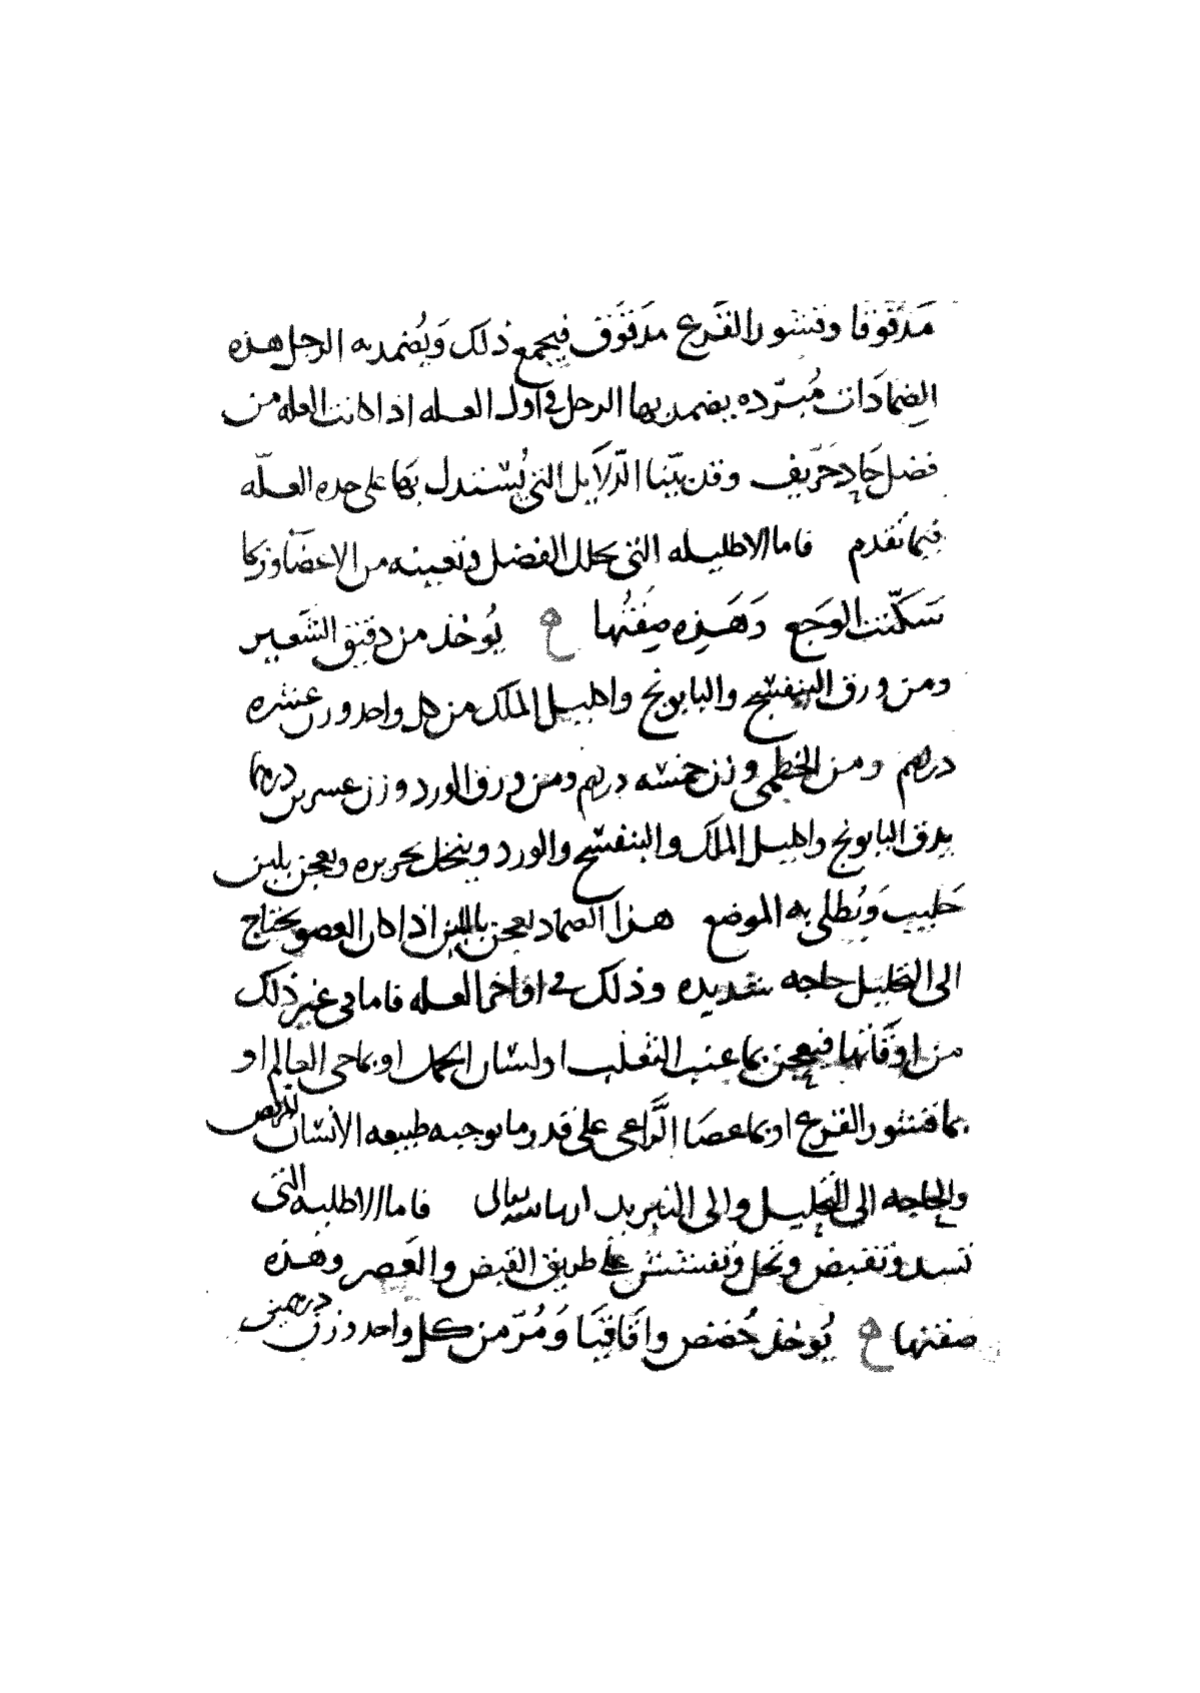 مدقوقا وقشور القرع مدقوق فيجمع ذلك ويُضمد به الرجل هذه
الضمادات مُبرّده يضمد بها الرجل في اول العله اذا كانت العله من
فضل حاد حرّيف وقد بيّنا الدّلايل التي يُستدل بها على هذه العلّه
فيما تقدم فاما الاطليه التي تحلل الفضل وتعينه من الاعضا وربما
سكّنت الوجع وهذه صفتها يُوخذ من دقيق الشعير
ومن ورق البنفسج والبابونج واكليل الملك من كل واحد وزن عشره
درهم ومن الخطمي وزن خمسه درهم ومن ورق الورد وزن عسرين درهما
يدق البابونج واكليل الملك والبنفسج والورد وينخل بحريره ويعجن بلبن
حليب ويُطلى به الموضع هذا الضماد يعجن باللبن اذا كان العضو يحتاج
الى التحليل حاجه شديده وذلك في اواخر العله فاما في غير ذلك
من اوقاتها فيعجن بما عنب الثعلب او لسان الحمل او بما حي العالم او
بما قشور القرع او بما عصا الرّاعي على قدر ما توجبه طبيعه الانسان المريض
والحاجه الى التحليل والى التبريد ان شا الله تعالى فاما الاطليه التي
تسد وتقبض وتحل وتفشش على طريق القبض والعصر وهذه
صفتها يُوخذ حُضض واقاقيا ومُرّ من كل واحد وزن درهمين